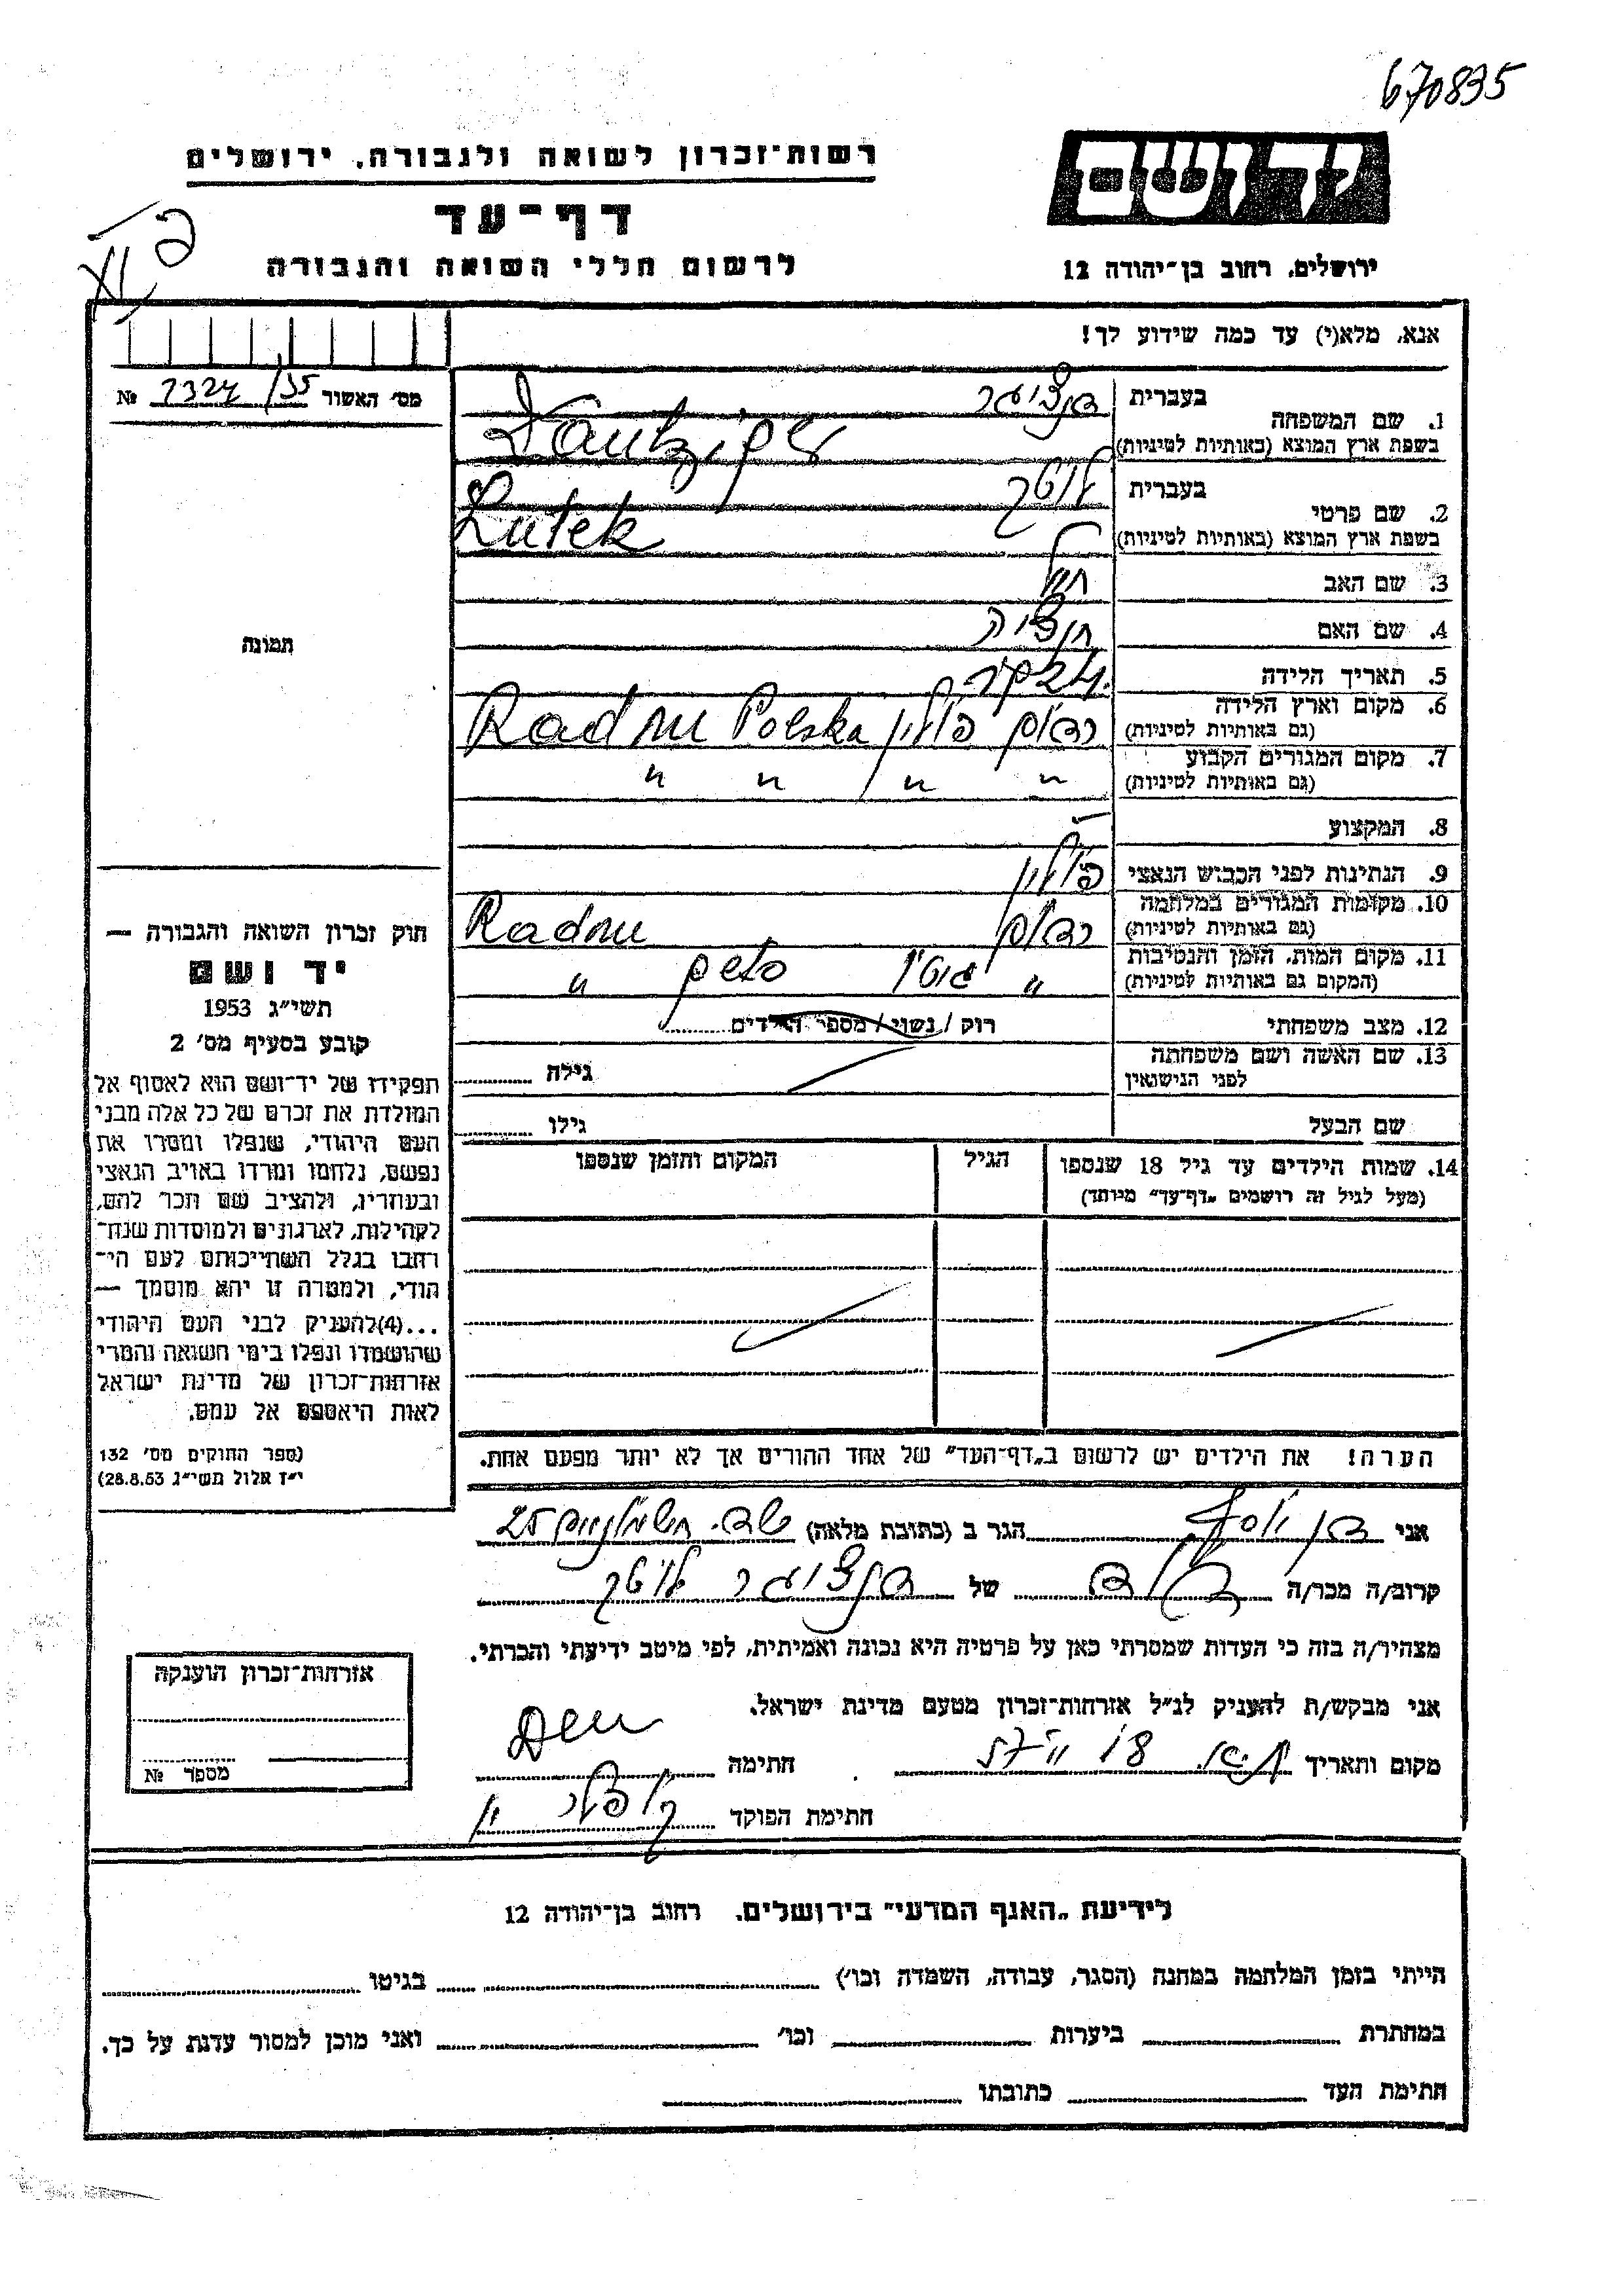 670835
רשות־זכרון לשואה ולגבורה, ירושלים
יד ושם
דף־עד
לרשום חללי השואה והגבורה
ירושלים, רחוב בן־יהודה 12
אנא, מלא(י) עד כמה שידוע לך!
מס׳ האשור 7324/35 №
1. שם המשפחה
בעברית דנציגר
בשפת ארץ המוצא (באותיות לטיניות) Dantziger
2. שם פרטי
בעברית לוטק
בשפת ארץ המוצא (באותיות לטיניות) Lutek
3. שם האב
4. שם האם
5. תאריך הלידה
6. מקום וארץ הלידה
(גם באותיות לטיניות) רדום פולין Radom Polska
7. מקום המגורים הקבוע
(גם באותיות לטיניות) " " " "
8. המקצוע
9. הנתינות לפני הכבוש הנאצי פולין
10. מקומות המגורים במלחמה
(גם באותיות לטיניות) רדום Radom
11. מקום המות, הזמן והנסיבות
(המקום גם באותיות לטיניות) " "
12. מצב משפחתי רוק / נשוי / מספר הילדים
13. שם האשה ושם משפחתה
לפני הנישואין
גילה
שם הבעל גילו
14. שמות הילדים עד גיל 18 שנספו
(מעל לגיל זה רושמים „דף־עד” מיוחד)
הגיל
המקום והזמן שנספו
הערה! את הילדים יש לרשום ב„דף־העד” של אחד ההורים אך לא יותר מפעם אחת.
תמונה
חוק זכרון השואה והגבורה —
יד ושם
תשי״ג 1953
קובע בסעיף מס׳ 2
תפקידו של יד־ושם הוא לאסוף אל
המולדת את זכרם של כל אלה מבני
העם היהודי, שנפלו ומסרו את
נפשם, נלחמו ומרדו באויב הנאצי
ובעוזריו, ולהציב שם וזכר להם,
לקהילות, לארגונים ולמוסדות שנח־
רבו בגלל השתייכותם לעם הי־
הודי, ולמטרה זו יהא מוסמך —
...(4)להעניק לבני העם היהודי
שהושמדו ונפלו בימי השואה והמרי
אזרחות־זכרון של מדינת ישראל
לאות היאספם אל עמם.
(ספר החוקים מס׳ 132
י״ז אלול תשי״ג 28.8.53)
אני דן יוסף הגר ב (כתובת מלאה) 25
קרוב/ה מכר/ה של דנציגר לוטק
מצהיר/ה בזה כי העדות שמסרתי כאן על פרטיה היא נכונה ואמיתית, לפי מיטב ידיעתי והכרתי.
אני מבקש/ת להעניק לנ״ל אזרחות־זכרון מטעם מדינת ישראל.
מקום ותאריך חתימה
חתימת הפוקד
אזרחות־זכרון הוענקה
מספר №
לידיעת „האגף המדעי” בירושלים, רחוב בן־יהודה 12
הייתי בזמן המלחמה במחנה (הסגר, עבודה, השמדה וכו׳) בגיטו
במחתרת ביערות וכו׳ ואני מוכן למסור עדות על כך.
חתימת העד כתובתו